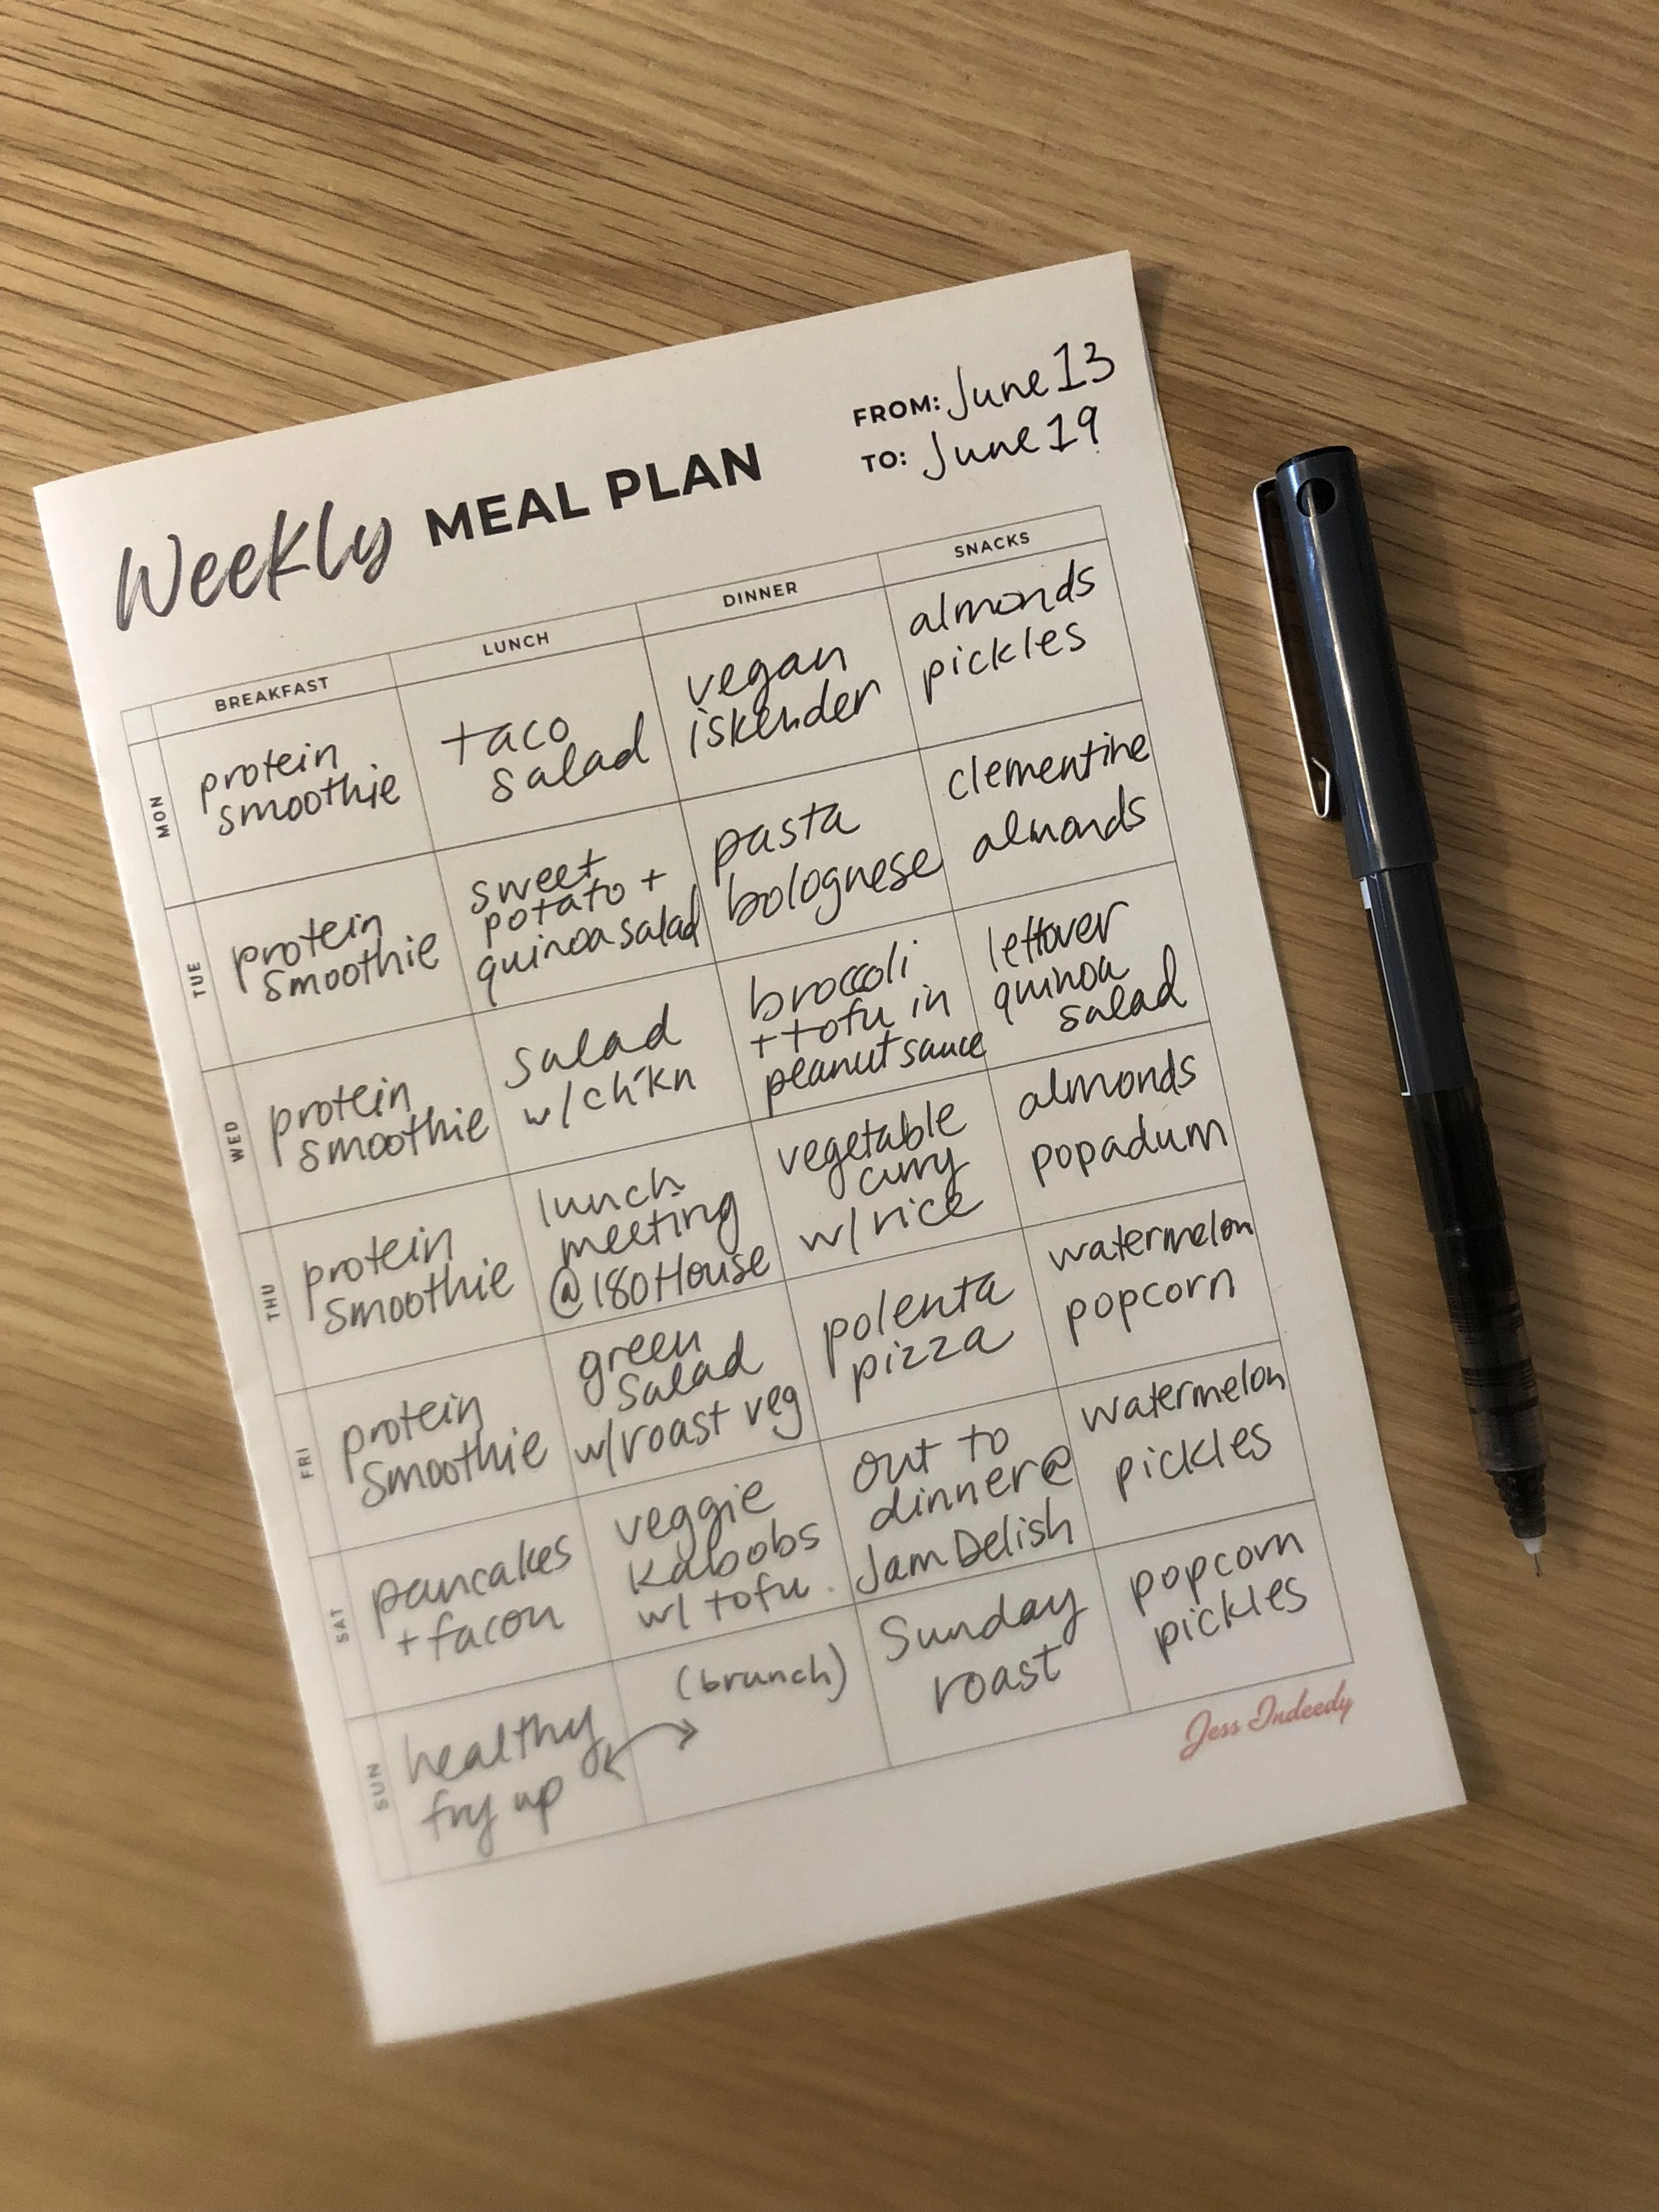 Weekly MEAL PLAN
FROM: June 13
TO: June 19
BREAKFAST
LUNCH
DINNER
SNACKS
MON
protein
smoothie
taco
salad
vegan
iskender
almonds
pickles
TUE
protein
smoothie
sweet
potato +
quinoa salad
pasta
bolognese
clementine
almonds
WED
protein
smoothie
salad
w/ ch'kn
broccoli
+ tofu in
peanut sauce
leftover
quinoa
salad
THU
protein
smoothie
lunch
meeting
@ 180 House
vegetable
curry
w/ rice
almonds
popadum
FRI
protein
smoothie
green
salad
w/ roast veg
polenta
pizza
watermelon
popcorn
SAT
pancakes
+ facon
veggie
kabobs
w/ tofu
out to
dinner @
Jam Delish
watermelon
pickles
SUN
healthy
fry up
(brunch)
Sunday
roast
popcorn
pickles
Jess Indeedy